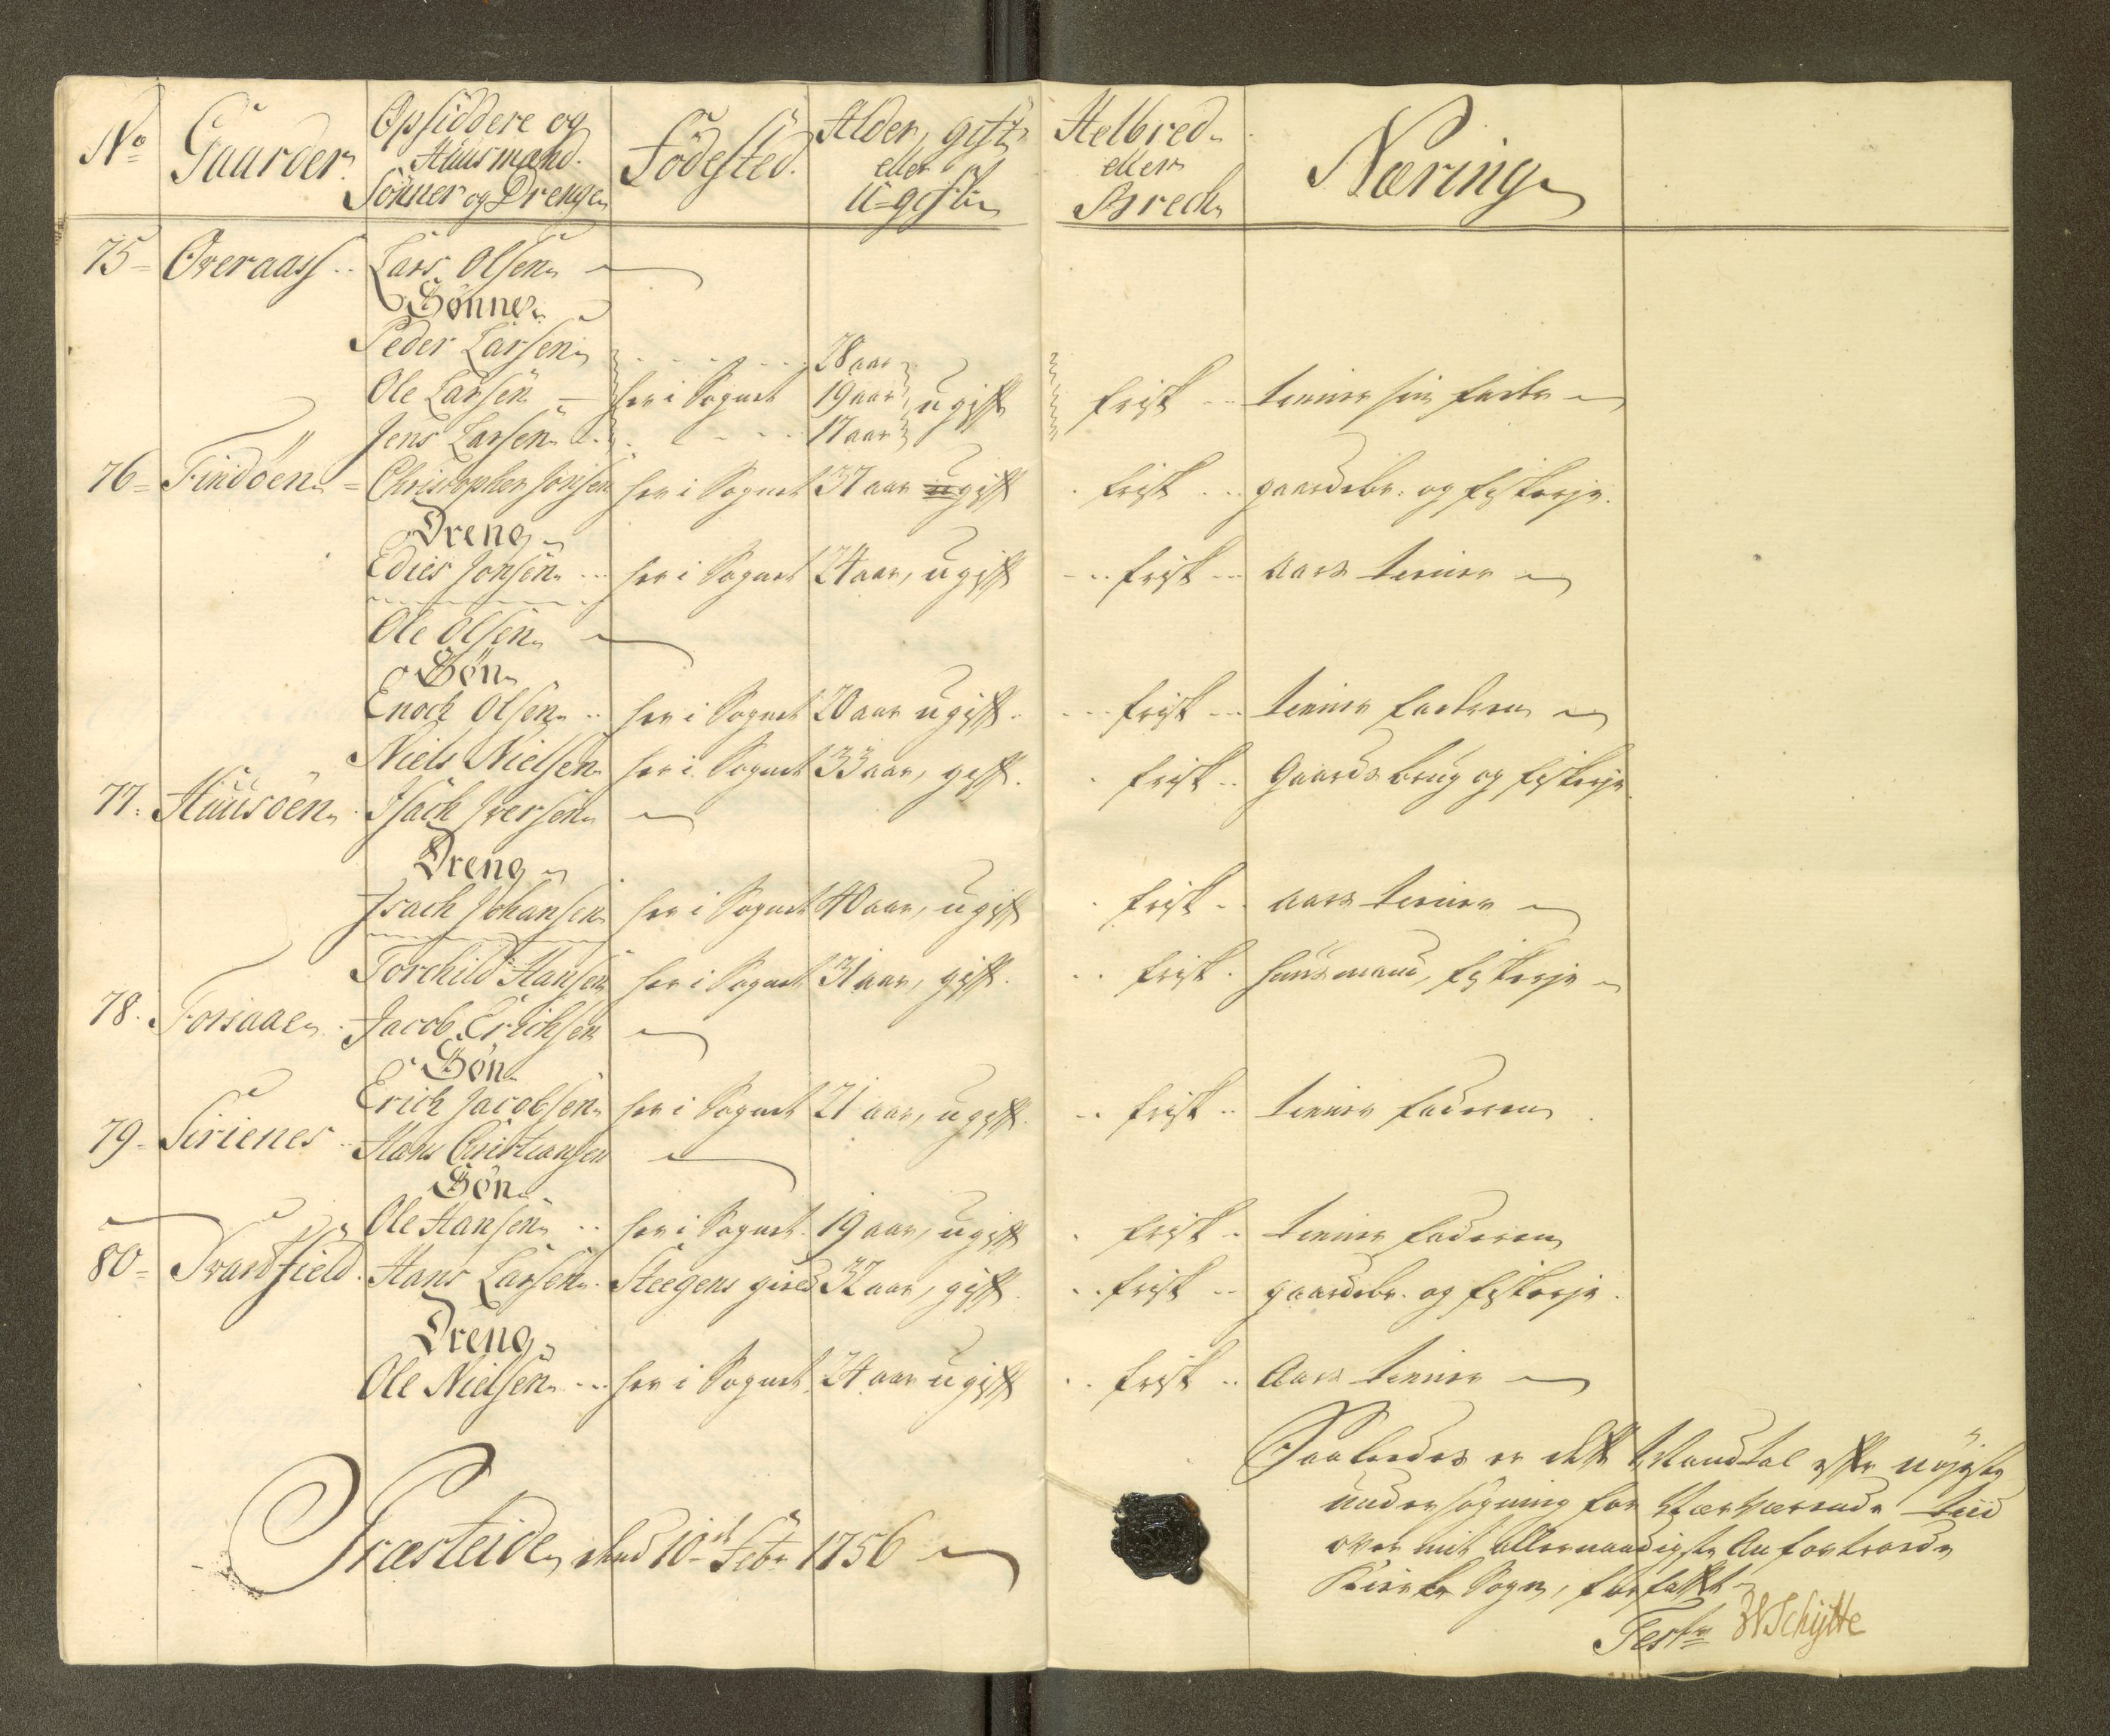 No Gaarder. Opsiddere og Huusmænd. Sönner og Drenge Födested. Alder, gift eller U-gift Helbred eller Bræck Næring
75 = Overaass .. Lars Olsen
Sönner
Peder Larsen 28 aar
Ole Larsen - her i Sognet 19 aar, ugift frisk .. tienner sin fader
Jens Larsen 17 aar
76 = Findöen = Christopher Jonsen her i Sognet 37 aar ugift frisk .. gaardsbr: og fiskerje.
Dreng
Edies Jonsen ... her i Sognet 24 aar, ugift .. frisk .. aars tienner
Ole Olsen
Sön
Enoch Olsen .. her i Sognet 20 aar ugift .. frisk .. tienner faderen
Niels Nielsen her i Sognet 33 aar, gift. frisk .. Gaardsbrug og fiskerje
77. Huusöen. Isach Iversen
Dreng
Isach Johansen her i Sognet 40 aar, ugift frisk .. aars tienner
Torchild Hansen her i Sognet 31 aar, gift. .. frisk . huusmand, fiskerje
78. Forsaae. Jacob Erichsen
Sön
Erich Jacobsen her i Sognet 21 aar, ugift. .. frisk .. tienner faderen
79 - Sirienes .. Hans Christiansen
Sön
Ole Hansen .. her i Sognet 19 aar, ugift frisk . tienner faderen
80 = Svartfield. Hans Larsen. Steegens gield 32 aar, gift .. frisk .. gaardsbr. og fiskerje.
Dreng
Ole Nielsen ... her i Sognet 24 aar ugift .. frisk .. Aars tienner
Saaledes er dette Mandtal efter nöjeste
undersögning for nærværende tiid
over mit allernaadigste Anfortroede
Kircke Sogn, forfattet
Præsteide, dend 10de Febr 1756
Test: Schÿtte